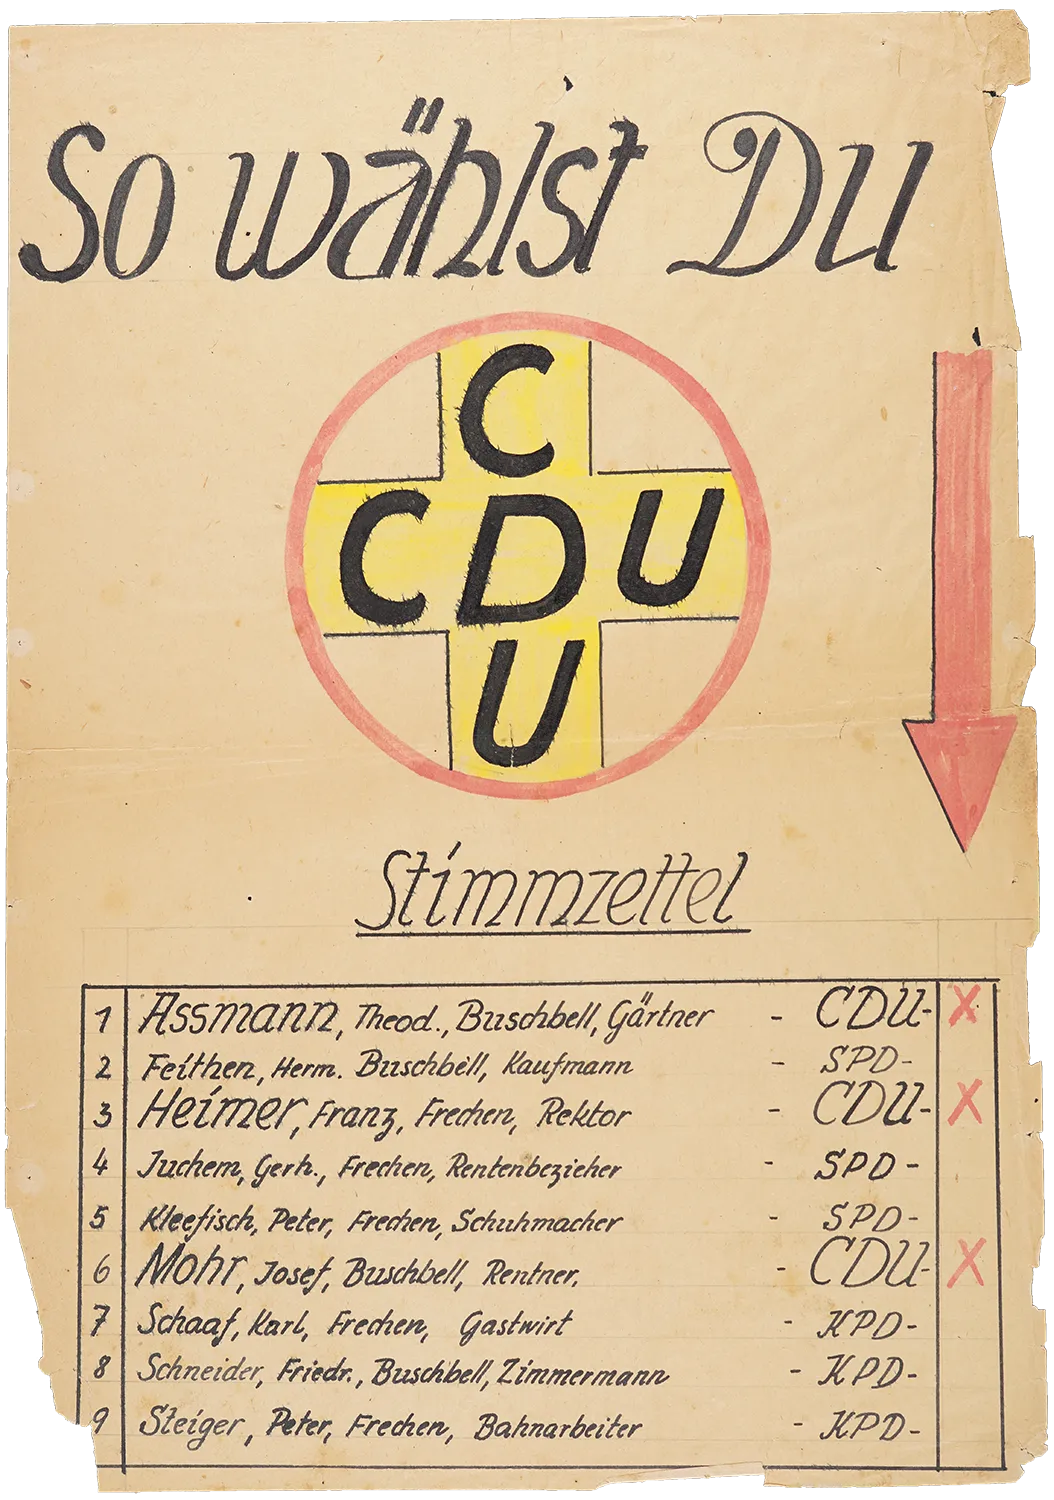 So wählst Du
C
CDU
U
Stimmzettel
1 Assmann, Theod., Buschbell, Gärtner - CDU- X
2 Feithen, Herm. Buschbell, Kaufmann - SPD-
3 Heimer, Franz, Frechen, Rektor - CDU- X
4 Juchem, Gerh., Frechen, Rentenbezieher - SPD-
5 Kleefisch, Peter, Frechen, Schuhmacher - SPD-
6 Mohr, Josef, Buschbell, Rentner, - CDU- X
7 Schaaf, Karl, Frechen, Gastwirt - KPD-
8 Schneider, Friedr., Buschbell, Zimmermann - KPD-
9 Steiger, Peter, Frechen, Bahnarbeiter - KPD-